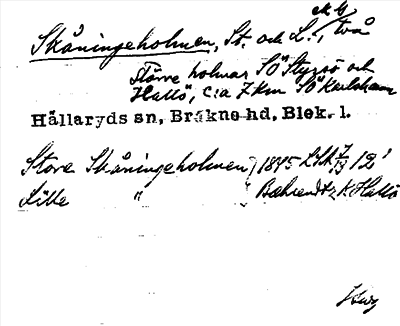 ek 4
Skåningeholmen, St. och L., två
större holmar SÖ Styrsö och
Hallö, c:a 7 km SÖ Karlshamn
Hällaryds sn, Bräkne hd, Blek. l.
Store Skåningeholmen 1845 LSA 7/13 12'
Lille " Bæhrendtz K Hallö